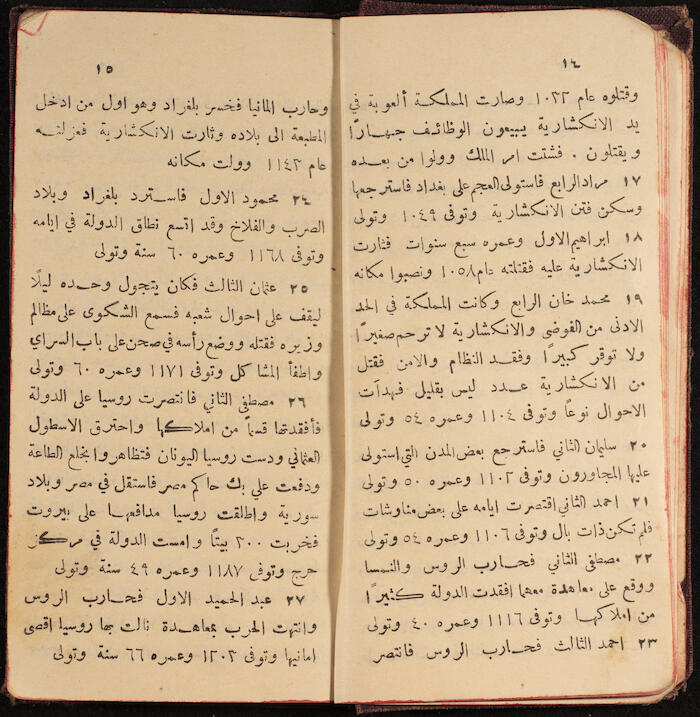 ١٤
وقتلوه عام ١٠٣٢ وصارت المملكة ألعوبة في
يد الانكشارية يبيعون الوظائف جهارًا
ويقتلون . فشتت امر الملك وولوا من بعده
١٧ مراد الرابع فاستولى العجم على بغداد فاسترجعها
وسكن فتن الانكشارية وتوفى ١٠٤٩ وتولى
١٨ ابراهيم الاول وعمره سبع سنوات فثارت
الانكشارية عليه فقتلته عام ١٠٥٨ ونصبوا مكانه
١٩ محمد خان الرابع وكانت المملكة في الحد
الادنى من الفوضى والانكشارية لا ترحم صغيرًا
ولا توقر كبيرًا وفقد النظام والامن فقتل
من الانكشارية عدد ليس بقليل فهدأت
الاحوال نوعًا وتوفى ١١٠٤ وعمره ٥٤ وتولى
٢٠ سليمان الثاني فاسترجع بعض المدن التي استولى
عليها المجاورون وتوفى ١١٠٢ وعمره ٥٠ وتولى
٢١ احمد الثاني اقتصرت ايامه على بعض مناوشات
فلم تكن ذات بال وتوفى ١١٠٦ وعمره ٥٤ وتولى
٢٢ مصطفى الثاني فحارب الروس والنمسا
ووقع على معاهدة معهما افقدت الدولة كثيرًا
من املاكها وتوفى ١١١٦ وعمره ٤٠ وتولى
٢٣ احمد الثالث فحارب الروس فانتصر
١٥
وحارب المانيا فخسر بلغراد وهو اول من ادخل
المطبعة الى بلاده وثارت الانكشارية فعزلته
عام ١١٤٣ وولت مكانه
٢٤ محمود الاول فاسترد بلغراد وبلاد
الصرب والفلاخ وقد اتسع نطاق الدولة في ايامه
وتوفى ١١٦٨ وعمره ٦٠ سنة وتولى
٢٥ عثمان الثالث فكان يتجول وحده ليلًا
ليقف على احوال شعبه فسمع الشكوى على مظالم
وزيره فقتله ووضع رأسه في صحن على باب السراي
واطفأ المشاكل وتوفى ١١٧١ وعمره ٦٠ وتولى
٢٦ مصطفى الثاني فانتصرت روسيا على الدولة
فأفقدتها قسمًا من املاكها واحترق الاسطول
العثماني ودست روسيا اليونان فتظاهروا بخلع الطاعة
ودفعت علي بك حاكم مصر فاستقل في مصر وبلاد
سورية واطلقت روسيا مدافعها على بيروت
فخربت ٣٠٠ بيتًا وامست الدولة في مركز
حرج وتوفى ١١٨٧ وعمره ٤٩ سنة وتولى
٢٧ عبد الحميد الاول فحارب الروس
وانتهت الحرب بمعاهدة نالت بها روسيا اقصى
امانيها وتوفى ١٢٠٣ وعمره ٦٦ سنة وتولى